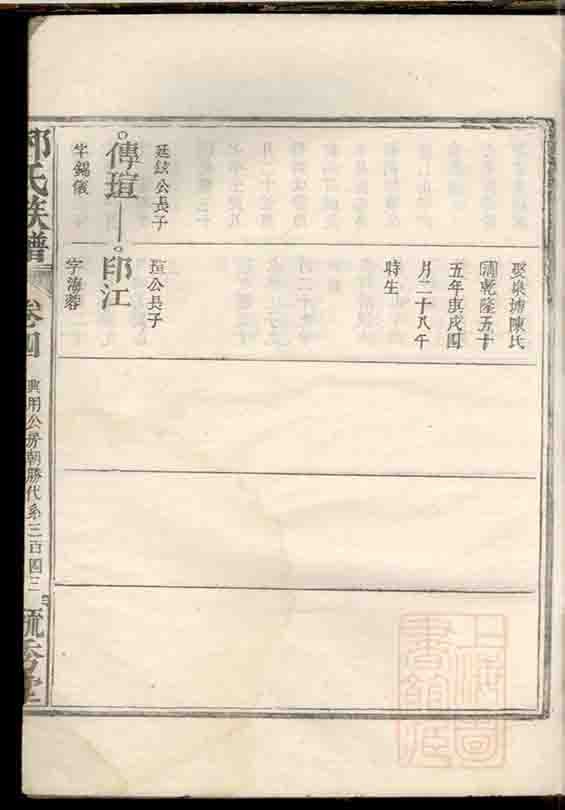 娶泉塘陳氏
清乾隆五十
五年庚戌四
月二十八午
時生
廷鋐公長子
傳瑄
字錫儀
瑄公長子
印江
字海蓉
氏族譜
卷四
興用公房朝勝代系三百四三
上海圖書館藏